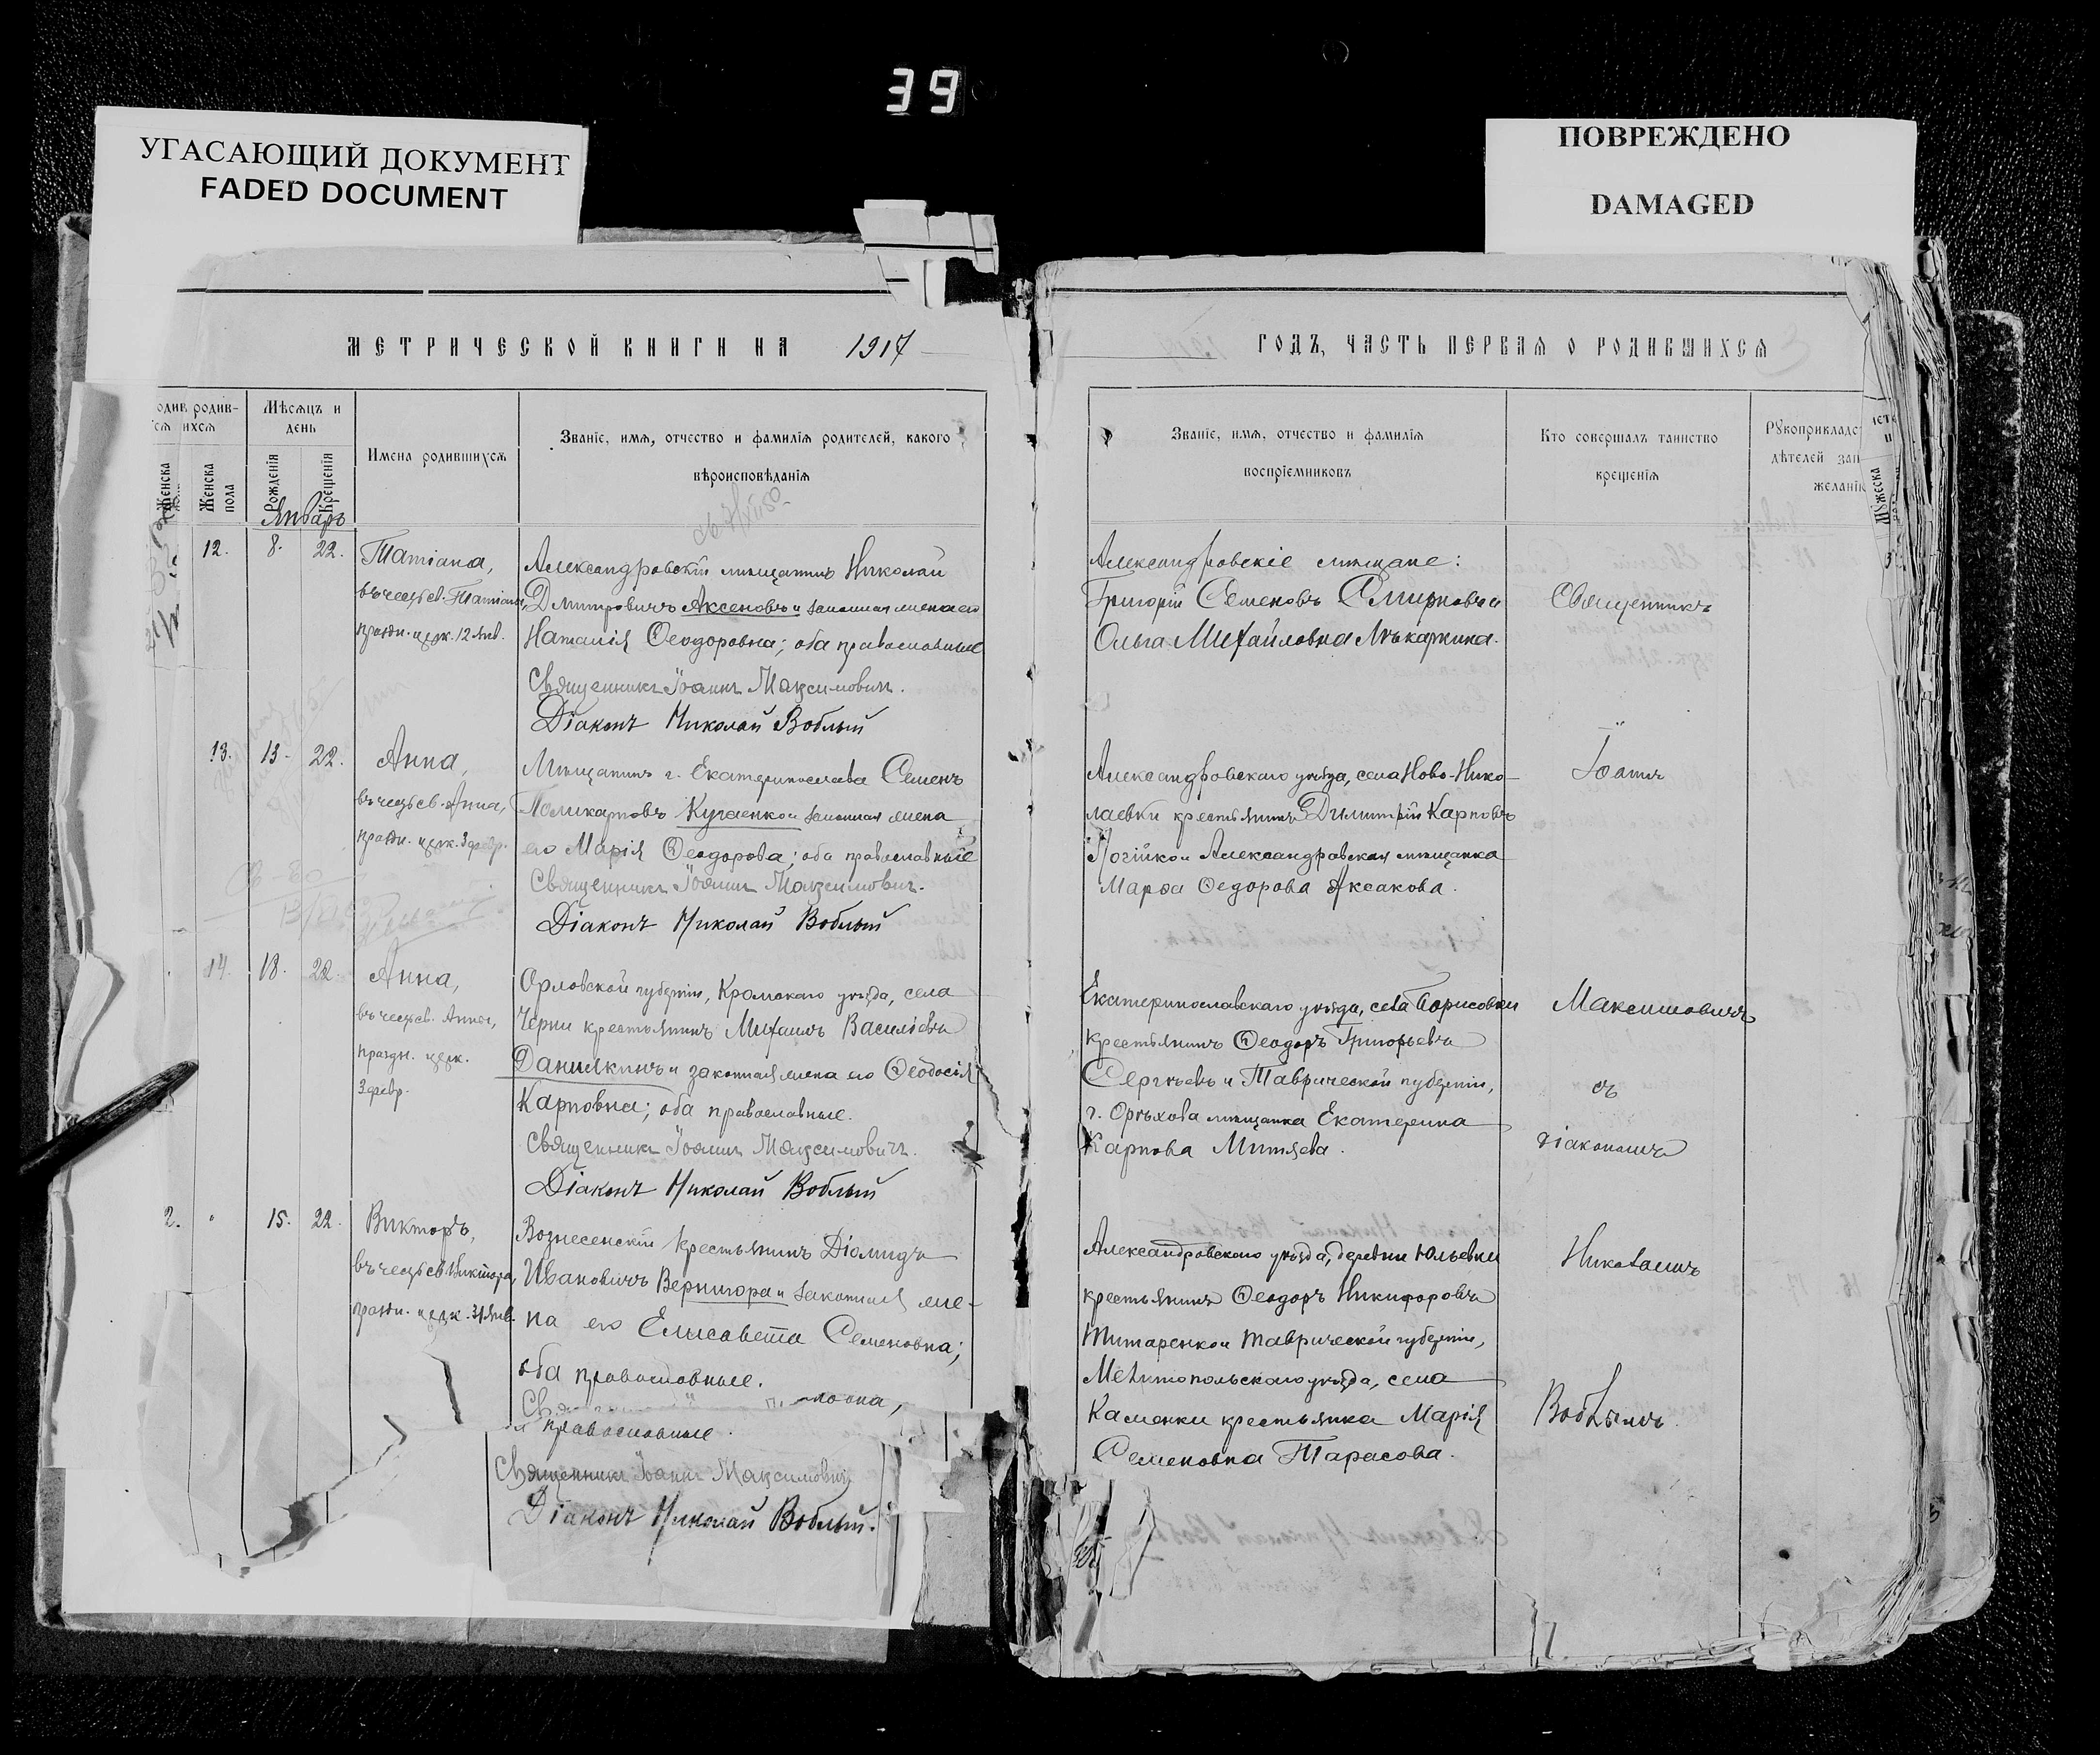 39
УГАСАЮЩИЙ ДОКУМЕНТ
FADED DOCUMENT
ПОВРЕЖДЕНО
DAMAGED
МЕТРИЧЕСКОЙ КНИГИ НА 1917
одив родив-
ся ихся
Мѣсяцъ и
день
Женска
Женска
пола
Рожденія
Крещенія
Имена родившихся
Званіе, имя, отчество и фамилія родителей, какого
вѣроисповѣданія
Январь
12. 8. 22.
Татіана,
въ честь св. Татіаны,
праздн. церк. 12 Янв.
Александровскій мѣщанинъ Николай
Дмитровичъ Аксеновъ и законная жена его
Наталія Ѳеодоровна; оба православные
Священникъ Іоаннъ Максимовичъ.
Діаконъ Николай Воблый
13. 13. 22.
Анна,
въ честь св. Анны,
праздн. церк. 3 февр.
Мѣщанинъ г. Екатеринослава Семенъ
Поликарповъ Куценко и законная жена
его Марія Ѳеодорова; оба православные
Священникъ Іоаннъ Максимовичъ.
Діаконъ Николай Воблый
14. 18. 22.
Анна,
въ честь св. Анны,
праздн. церк.
3 февр.
Орловской губерніи, Кромскаго уѣзда, села
Черни крестьянинъ Михаилъ Василіевъ
Данилкинъ и законная жена его Ѳеодосія
Карповна; оба православные.
Священникъ Іоаннъ Максимовичъ.
Діаконъ Николай Воблый
2. " 15. 22.
Викторъ,
въ честь св. Виктора,
праздн. церк. 31 Янв.
Вознесенскій крестьянинъ Діомидъ
Ивановичъ Вернигора и законная же-
на его Елисавета Семеновна;
оба православные.
православные.
Священникъ Іоаннъ Максимовичъ
Діаконъ Николай Воблый.
ГОДЪ, ЧАСТЬ ПЕРВАЯ О РОДИВШИХСЯ
Званіе, имя, отчество и фамилія
воспріемниковъ
Кто совершалъ таинство
крещенія
Рукоприкладс
дѣтелей зап
желанію
Мужеска
Александровскіе мѣщане:
Григорій Семеновъ Смирновъ и
Ольга Михайловна Лѣкаркина.
Александровскаго уѣзда, села Ново-Нико-
лаевки крестьянинъ Димитрій Карповъ
и Александровская мѣщанка
Марѳа Ѳедорова Аксакова.
Екатеринославскаго уѣзда, села Борисовки
крестьянинъ Ѳеодоръ Григорьевъ
Сергѣевъ и Таврической губерніи,
г. Орѣхова мѣщанка Екатерина
Карпова Митяева.
Александровскаго уѣзда, деревни Юльевки
крестьянинъ Ѳеодоръ Никифоровъ
Титаренко и Таврической губерніи,
Мелитопольскаго уѣзда, села
Каменки крестьянка Марія
Семеновна Тарасова.
Священникъ
Іоаннъ
Максимовичъ
съ
діакономъ
Николаемъ
Воблымъ.